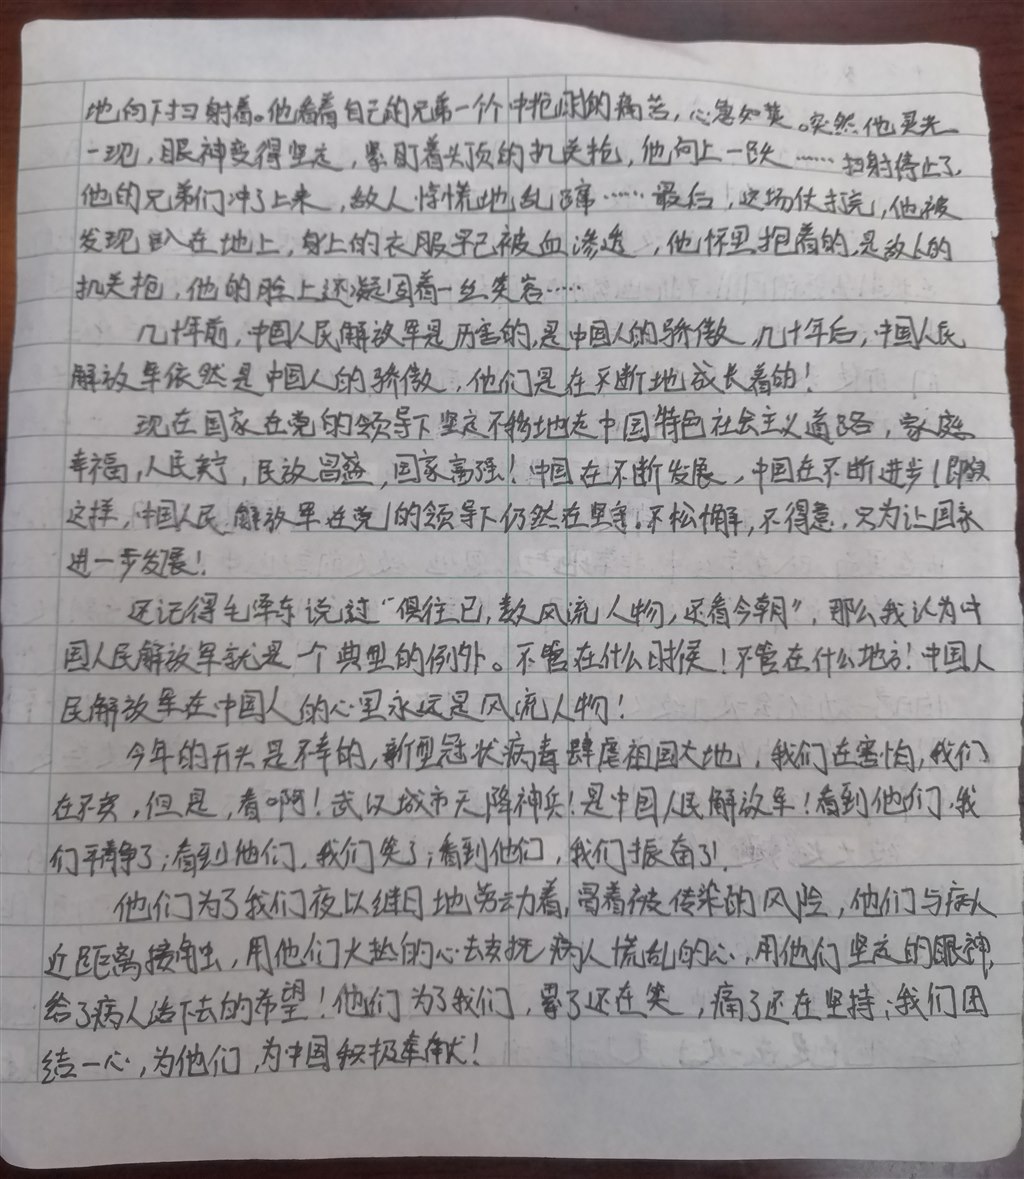 地向下扫射着。他看着自己的兄弟一个个中枪时的痛苦，心急如焚。突然他灵光
一现，眼神变得坚定，紧盯着头顶的机关枪，他向上一跃……扫射停止了，
他的兄弟们冲了上来，敌人惊慌地乱蹿……最后！这场仗打完，他被
发现趴在地上，身上的衣服早已被血渗透，他怀里抱着的，是敌人的
机关枪，他的脸上还凝固着一丝笑容……
几十年前，中国人民解放军是厉害的，是中国人的骄傲，几十年后，中国人民
解放军依然是中国人的骄傲，他们是在不断地成长着的！
现在国家在党的领导下坚定不移地走中国特色社会主义道路，家庭
幸福，人民安宁，民族昌盛，国家富强！中国在不断发展，中国在不断进步！即使
这样，中国人民解放军在党的领导下仍然在坚守。不松懈，不得意，只为让国家
进一步发展！
还记得毛泽东说过“俱往已，数风流人物，还看今朝”，那么我认为中
国人民解放军就是一个典型的例外。不管在什么时候！不管在什么地方！中国人
民解放军在中国人的心里永远是风流人物！
今年的开头是不幸的，新型冠状病毒肆虐祖国大地，我们在害怕，我们
在不安，但是，看啊！武汉城市天降神兵！是中国人民解放军！看到他们，我
们平静了；看到他们，我们笑了；看到他们，我们振奋了！
他们为了我们夜以继日地劳动着，冒着被传染的风险，他们与病人
近距离接触，用他们火热的心去安抚病人慌乱的心，用他们坚定的眼神，
给了病人活下去的希望！他们为了我们，累了还在笑，痛了还在坚持；我们团
结一心，为他们，为中国积极奉献！